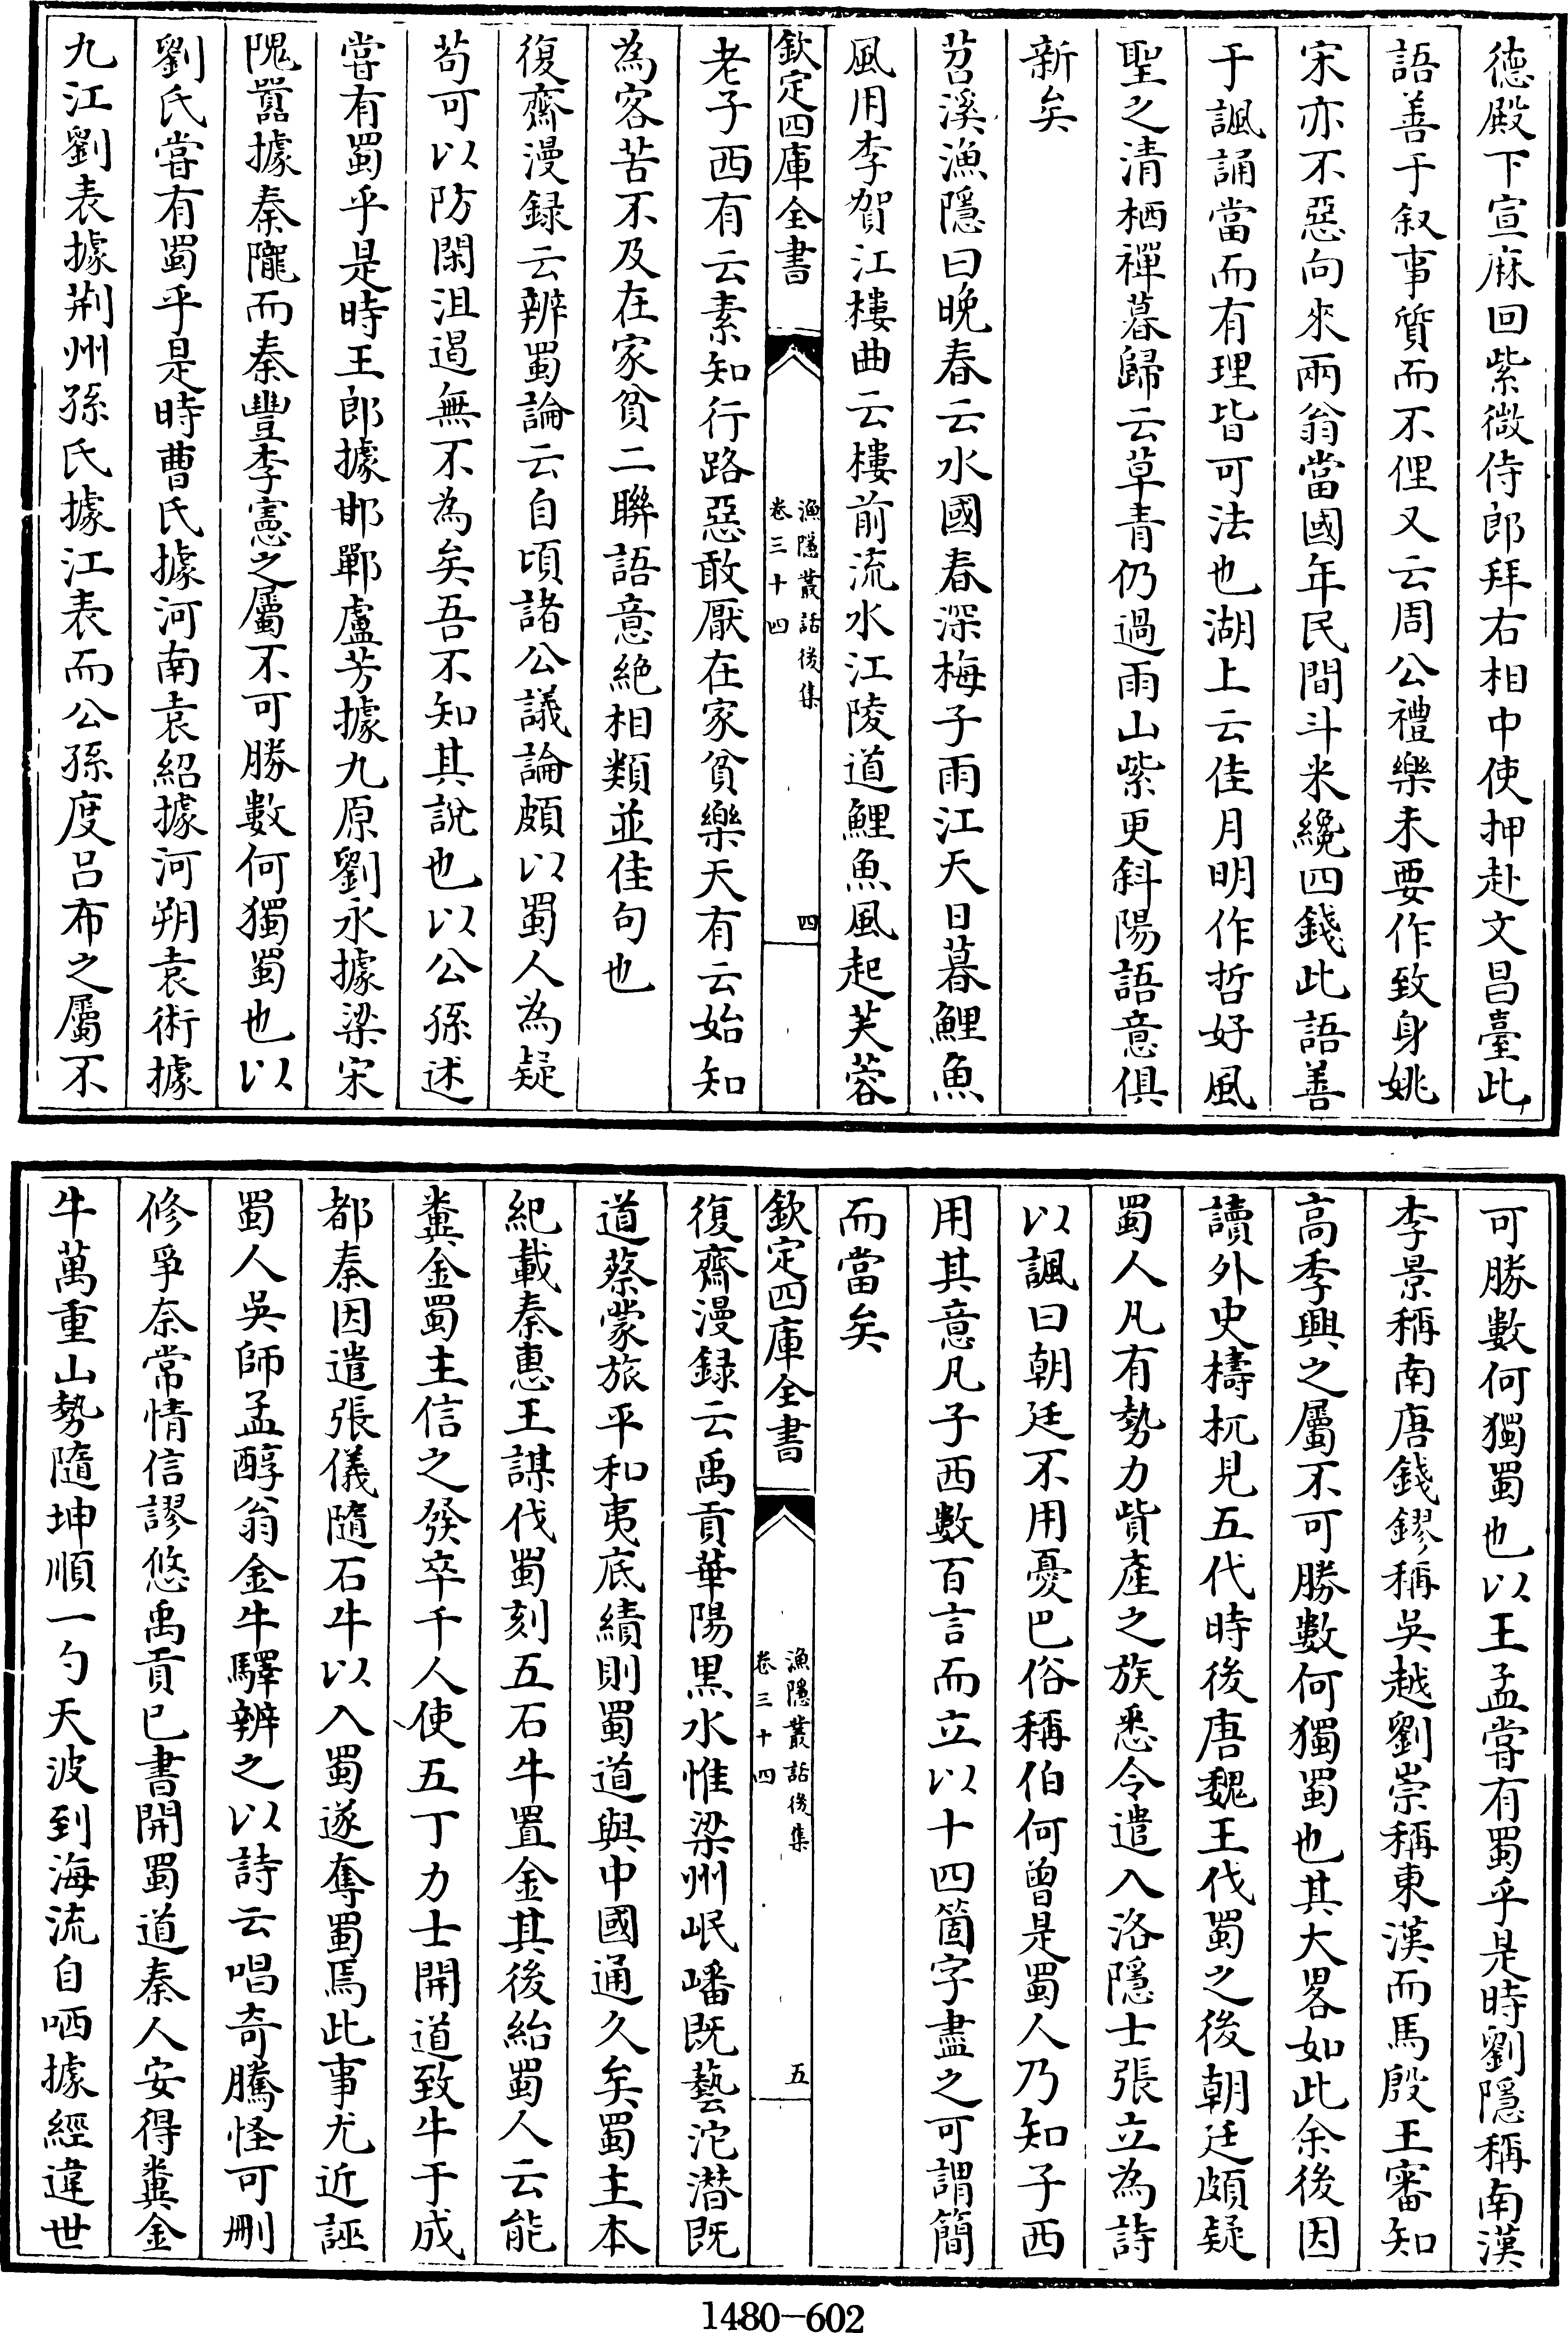 德殿下宣麻回紫微侍郎拜右相中使押赴文昌臺此
語善于叙事質而不俚又云周公禮樂未要作致身姚
宋亦不惡向來兩翁當國年民間斗米纔四錢此語善
于諷誦當而有理皆可法也湖上云佳月明作哲好風
聖之清栖禪暮歸云草青仍過雨山紫更斜陽語意俱
新矣
苕溪漁隱曰晚春云水國春深梅子雨江天日暮鯉魚
風用李賀江樓曲云樓前流水江陵道鯉魚風起芙蓉
欽定四庫全書
漁隱叢話後集
卷三十四
四
老子西有云素知行路惡敢厭在家貧樂天有云始知
為客苦不及在家貧二聯語意絶相類並佳句也
復齋漫録云辨蜀論云自頃諸公議論頗以蜀人為疑
苟可以防閑沮遏無不為矣吾不知其說也以公孫述
嘗有蜀乎是時王郎據邯鄲盧芳據九原劉永據梁宋
隗囂據秦隴而秦豐李憲之屬不可勝數何獨蜀也以
劉氏嘗有蜀乎是時曹氏據河南袁紹據河朔袁術據
九江劉表據荆州孫氏據江表而公孫度呂布之屬不
可勝數何獨蜀也以王孟嘗有蜀乎是時劉隱稱南漢
李景稱南唐錢鏐稱吳越劉崇稱東漢而馬殷王審知
高季興之屬不可勝數何獨蜀也其大畧如此余後因
讀外史檮杌見五代時後唐魏王伐蜀之後朝廷頗疑
蜀人凡有勢力貲產之族悉令遣入洛隱士張立為詩
以諷曰朝廷不用憂巴俗稱伯何曾是蜀人乃知子西
用其意凡子西數百言而立以十四箇字盡之可謂簡
而當矣
欽定四庫全書
漁隱叢話後集
卷三十四
五
復齋漫録云禹貢華陽黒水惟梁州岷嶓既藝沱潜既
道蔡蒙旅平和夷底績則蜀道與中國通久矣蜀主本
紀載秦惠王謀伐蜀刻五石牛置金其後紿蜀人云能
糞金蜀主信之發卒千人使五丁力士開道致牛于成
都秦因遣張儀隨石牛以入蜀遂奪蜀焉此事尤近誣
蜀人吳師孟醇翁金牛驛辨之以詩云唱奇騰怪可刪
修爭奈常情信謬悠禹貢已書開蜀道秦人安得糞金
牛萬重山勢隨坤順一勺天波到海流自哂據經違世
1480-602